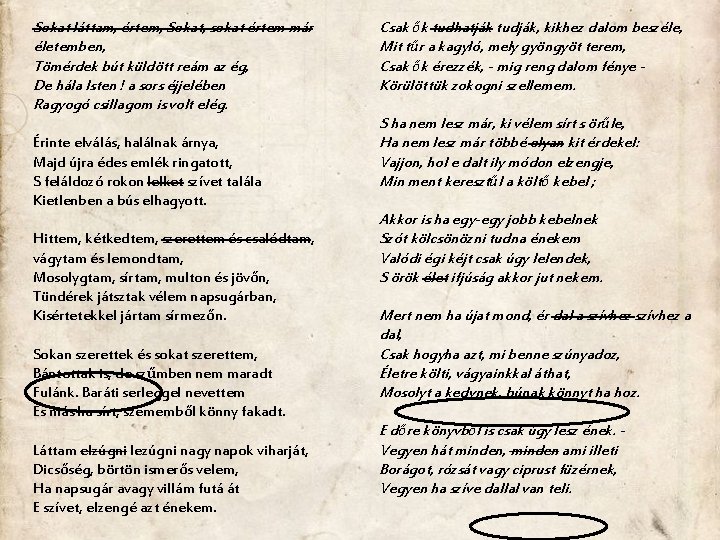 Sokat láttam, értem, Sokat, sokat értem már
életemben,
Tömérdek bút küldött reám az ég,
De hála Isten ! a sors éjjelében
Ragyogó csillagom is volt elég.
Érinte elválás, halálnak árnya,
Majd újra édes emlék ringatott,
S feláldozó rokon lelket szívet talála
Kietlenben a bús elhagyott.
Hittem, kétkedtem, szerettem és csalódtam,
vágytam és lemondtam,
Mosolygtam, sírtam, multon és jövőn,
Tündérek játsztak vélem napsugárban,
Kisértetekkel jártam sírmezőn.
Sokan szerettek és sokat szerettem,
Bántottak is, de szűmben nem maradt
Fulánk. Baráti serleggel nevettem
És más ha sírt, szememből könny fakadt.
Láttam elzúgni lezúgni nagy napok viharját,
Dicsőség, börtön ismerős velem,
Ha napsugár avagy villám futá át
E szívet, elzengé azt énekem.
Csak ők tudhatják tudják, kikhez dalom beszéle,
Mit tűr a kagyló, mely gyöngyöt terem,
Csak ők érezzék, - mig reng dalom fénye -
Körülöttük zokogni szellemem.
S ha nem lesz már, ki vélem sírt s örűle,
Ha nem lesz már többé olyan kit érdekel:
Vajjon, hol e dalt ily módon elzengje,
Min ment keresztűl a költő kebel ;
Akkor is ha egy-egy jobb kebelnek
Szót kölcsönözni tudna énekem
Valódi égi kéjt csak úgy lelendek,
S örök élet ifjúság akkor jut nekem.
Mert nem ha újat mond, ér dal a szívhez szívhez a
dal,
Csak hogyha azt, mi benne szúnyadoz,
Életre költi, vágyainkkal áthat,
Mosolyt a kedvnek, búnak könnyt ha hoz.
E dőre könyvből is csak ugy lesz ének. -
Vegyen hát minden, minden ami illeti
Borágot, rózsát vagy ciprust füzérnek,
Vegyen ha szíve dallal van teli.